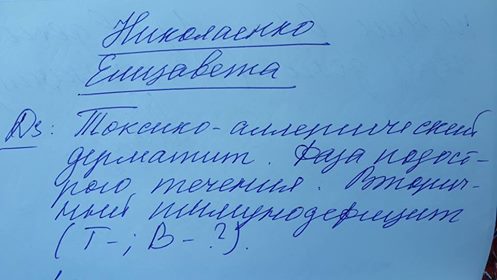 Николаенко
Елизавета
Ds: Токсико-аллергический
дерматит. Фаза подост-
рого течения. Вторич-
ный иммунодефицит
(Т-; В-?).